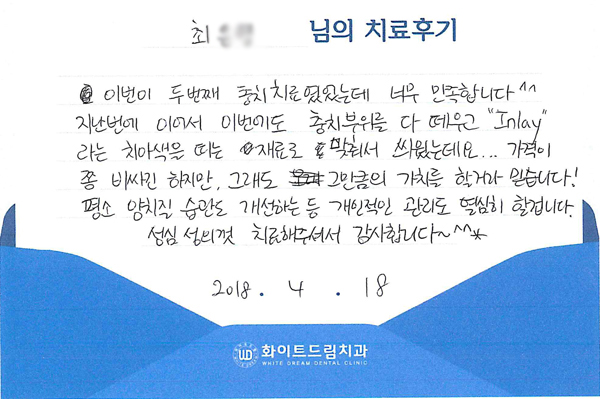 최 님의 치료후기
이번이 두번째 충치치료였었는데 너무 만족합니다^^
지난번에 이어서 이번에도 충치부위를 다 떼우고 "Inlay"
라는 치아색을 띠는 재료로 맞춰서 씌웠는데요... 가격이
쫌 비사긴 하지만, 그래도 그만큼의 가치를 할거라 믿습니다!
평소 양치질 습관도 개선하는 등 개인적인 관리도 열심히 할겁니다.
성심 성의껏 치료해주셔서 감사합니다~^^*
2018. 4. 18
화이트드림치과
WHITE DREAM DENTAL CLINIC